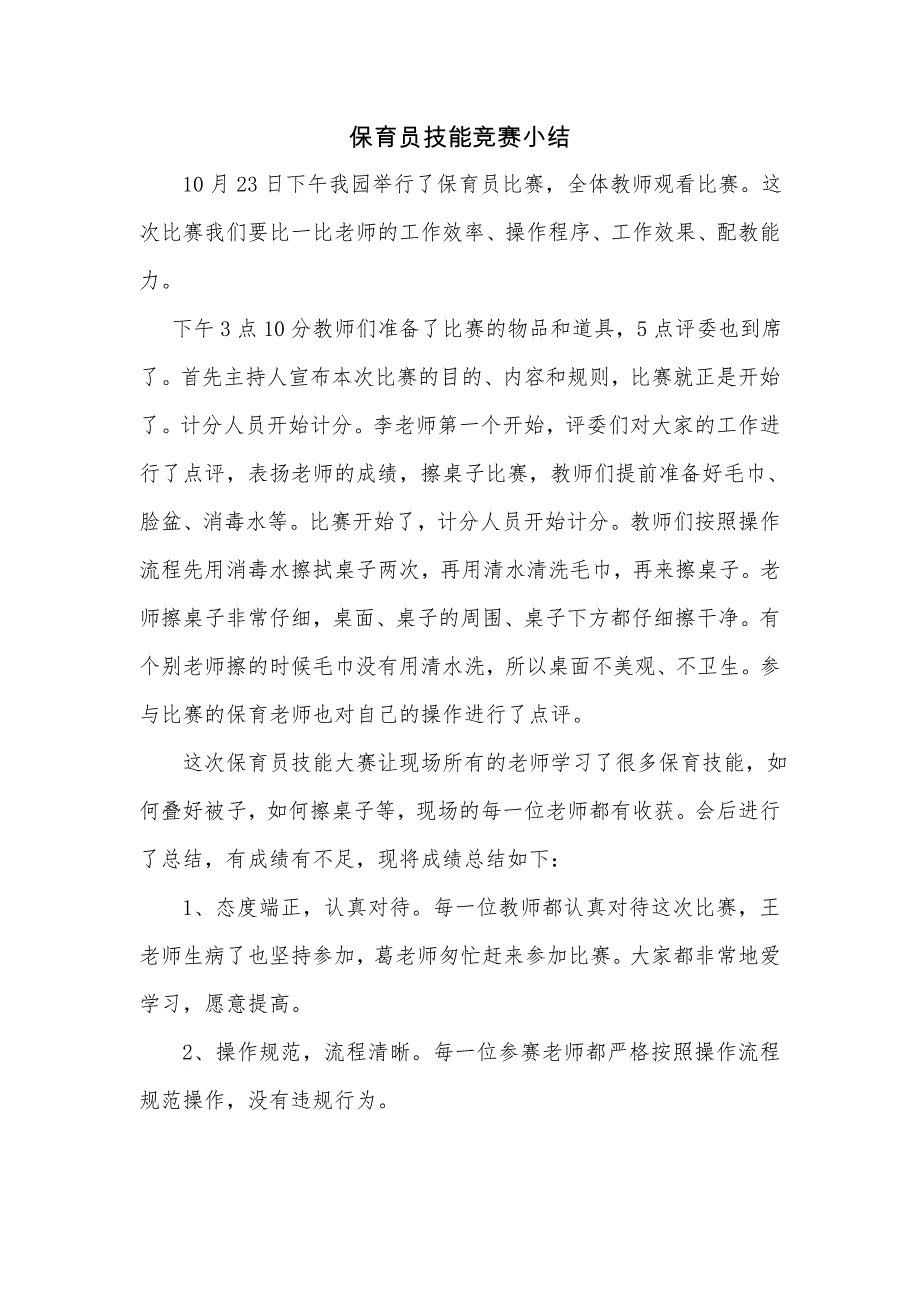 保育员技能竞赛小结
10月23日下午我园举行了保育员比赛，全体教师观看比赛。这
次比赛我们要比一比老师的工作效率、操作程序、工作效果、配教能
力。
下午3点10分教师们准备了比赛的物品和道具，5点评委也到席
了。首先主持人宣布本次比赛的目的、内容和规则，比赛就正是开始
了。计分人员开始计分。李老师第一个开始，评委们对大家的工作进
行了点评，表扬老师的成绩，擦桌子比赛，教师们提前准备好毛巾、
脸盆、消毒水等。比赛开始了，计分人员开始计分。教师们按照操作
流程先用消毒水擦拭桌子两次，再用清水清洗毛巾，再来擦桌子。老
师擦桌子非常仔细，桌面、桌子的周围、桌子下方都仔细擦干净。有
个别老师擦的时候毛巾没有用清水洗，所以桌面不美观、不卫生。参
与比赛的保育老师也对自己的操作进行了点评。
这次保育员技能大赛让现场所有的老师学习了很多保育技能，如
何叠好被子，如何擦桌子等，现场的每一位老师都有收获。会后进行
了总结，有成绩有不足，现将成绩总结如下：
1、态度端正，认真对待。每一位教师都认真对待这次比赛，王
老师生病了也坚持参加，葛老师匆忙赶来参加比赛。大家都非常地爱
学习，愿意提高。
2、操作规范，流程清晰。每一位参赛老师都严格按照操作流程
规范操作，没有违规行为。